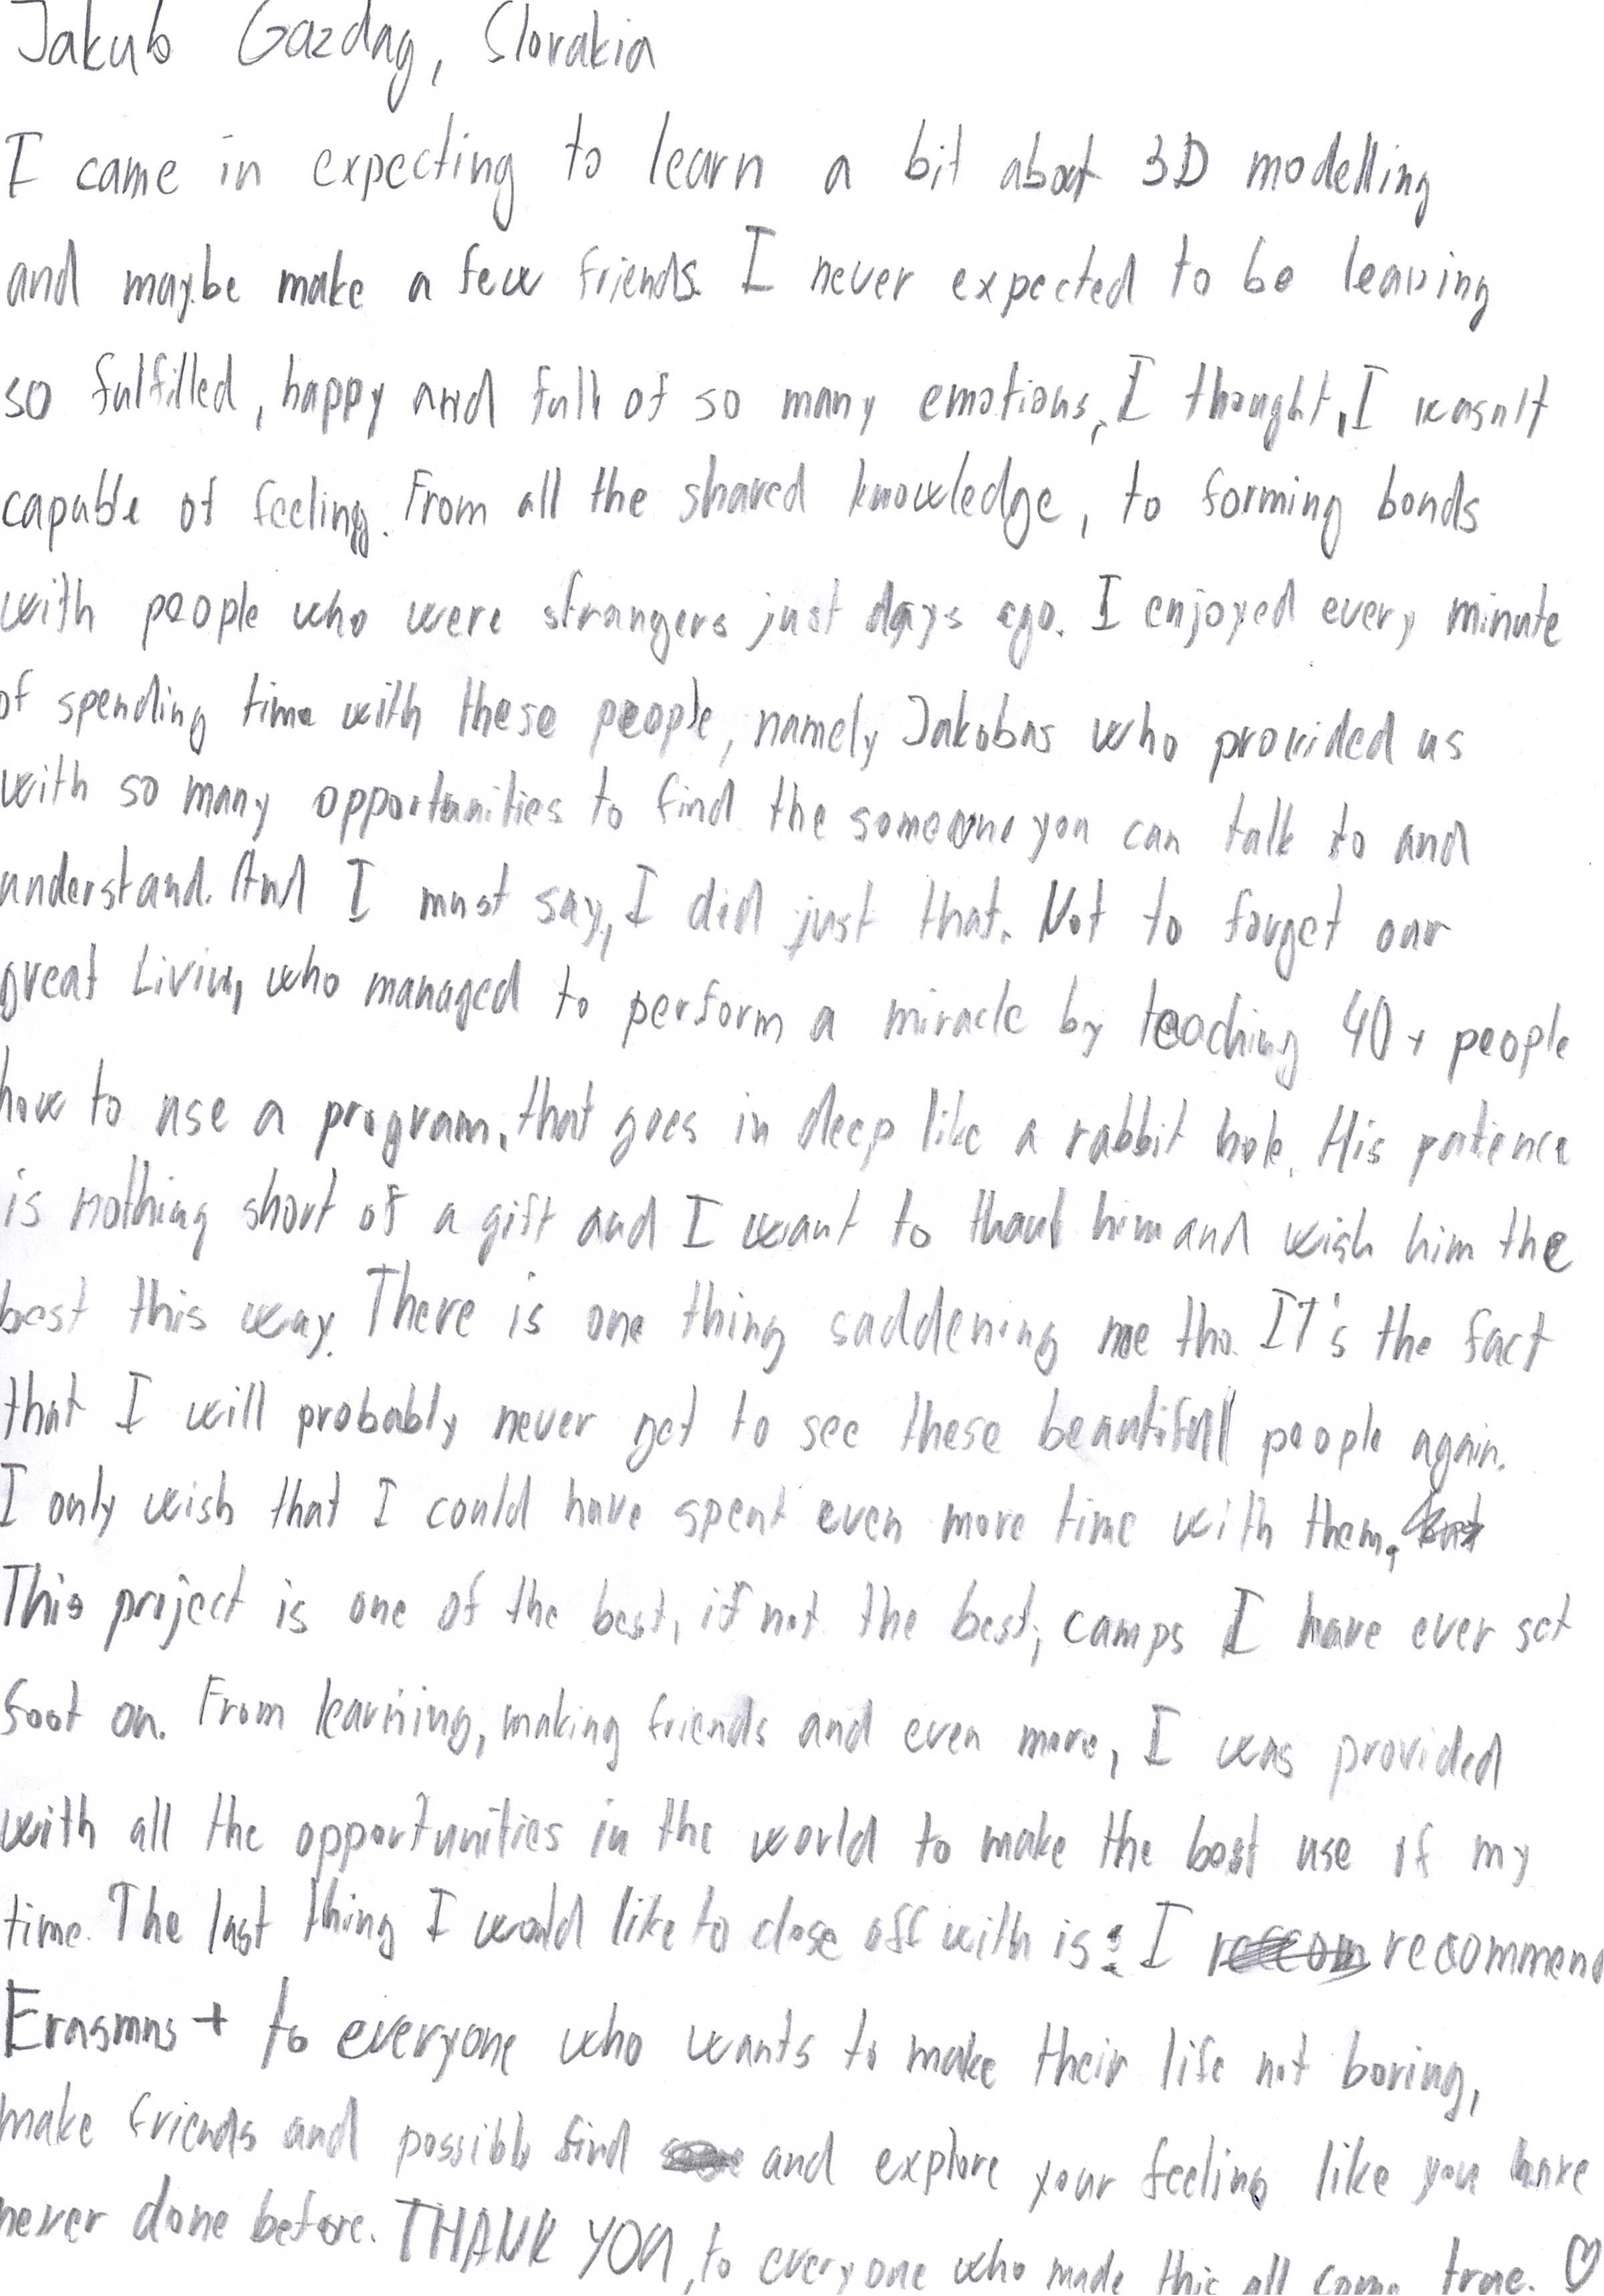 Jakub Gazdag, Slovakia
I came in expecting to learn a bit about 3D modelling
and maybe make a few friends. I never expected to be leaving
so fulfilled, happy and full of so many emotions, I thought, I wasn't
capable of feeling. From all the shared knowledge, to forming bonds
with people who were strangers just days ago. I enjoyed every minute
of spending time with these people, namely Jakobas who provided us
with so many opportunities to find the someone you can talk to and
understand. And I must say, I did just that. Not to forget our
great Liviu, who managed to perform a miracle by teaching 40+ people
how to use a program, that goes in deep like a rabbit hole. His patience
is nothing short of a gift and I want to thank him and wish him the
best this way. There is one thing saddening me tho. IT's the fact
that I will probably never get to see these beautifull people again.
I only wish that I could have spent even more time with them.
This project is one of the best, if not the best, camps I have ever set
foot on. From learning, making friends and even more, I was provided
with all the opportunities in the world to make the best use of my
time. The last thing I would like to close off with is: I recommend
Erasmus + to everyone who wants to make their life not boring,
make friends and possibly find and explore your feeling like you have
never done before. THANK YOU, to everyone who made this all come true. ♡